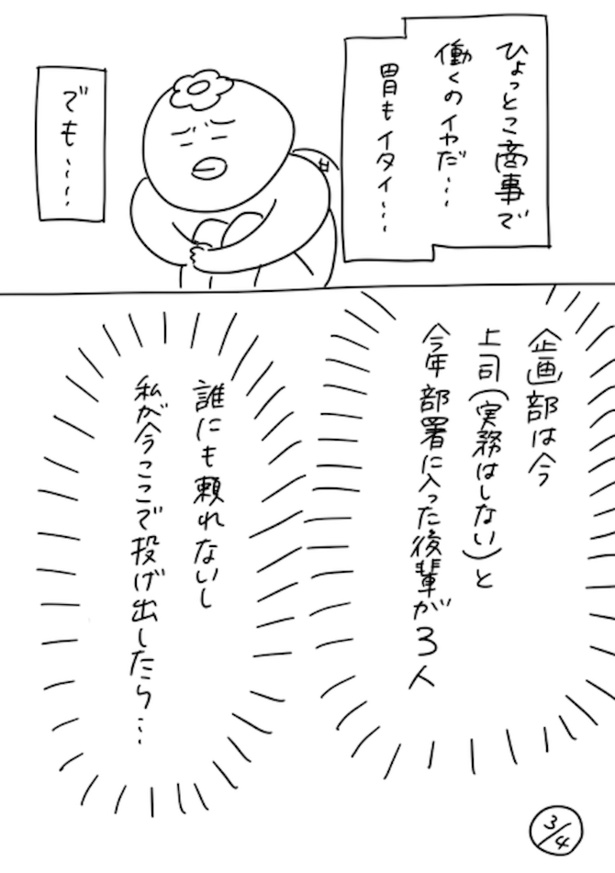 ひょっとこ商事で
働くのイヤだ…
胃もイタイ…
でも……
企画部は今
上司(実務はしない)と
今年部署に入った後輩が3人
誰にも頼れないし
私が今ここで投げ出したら…
3/4